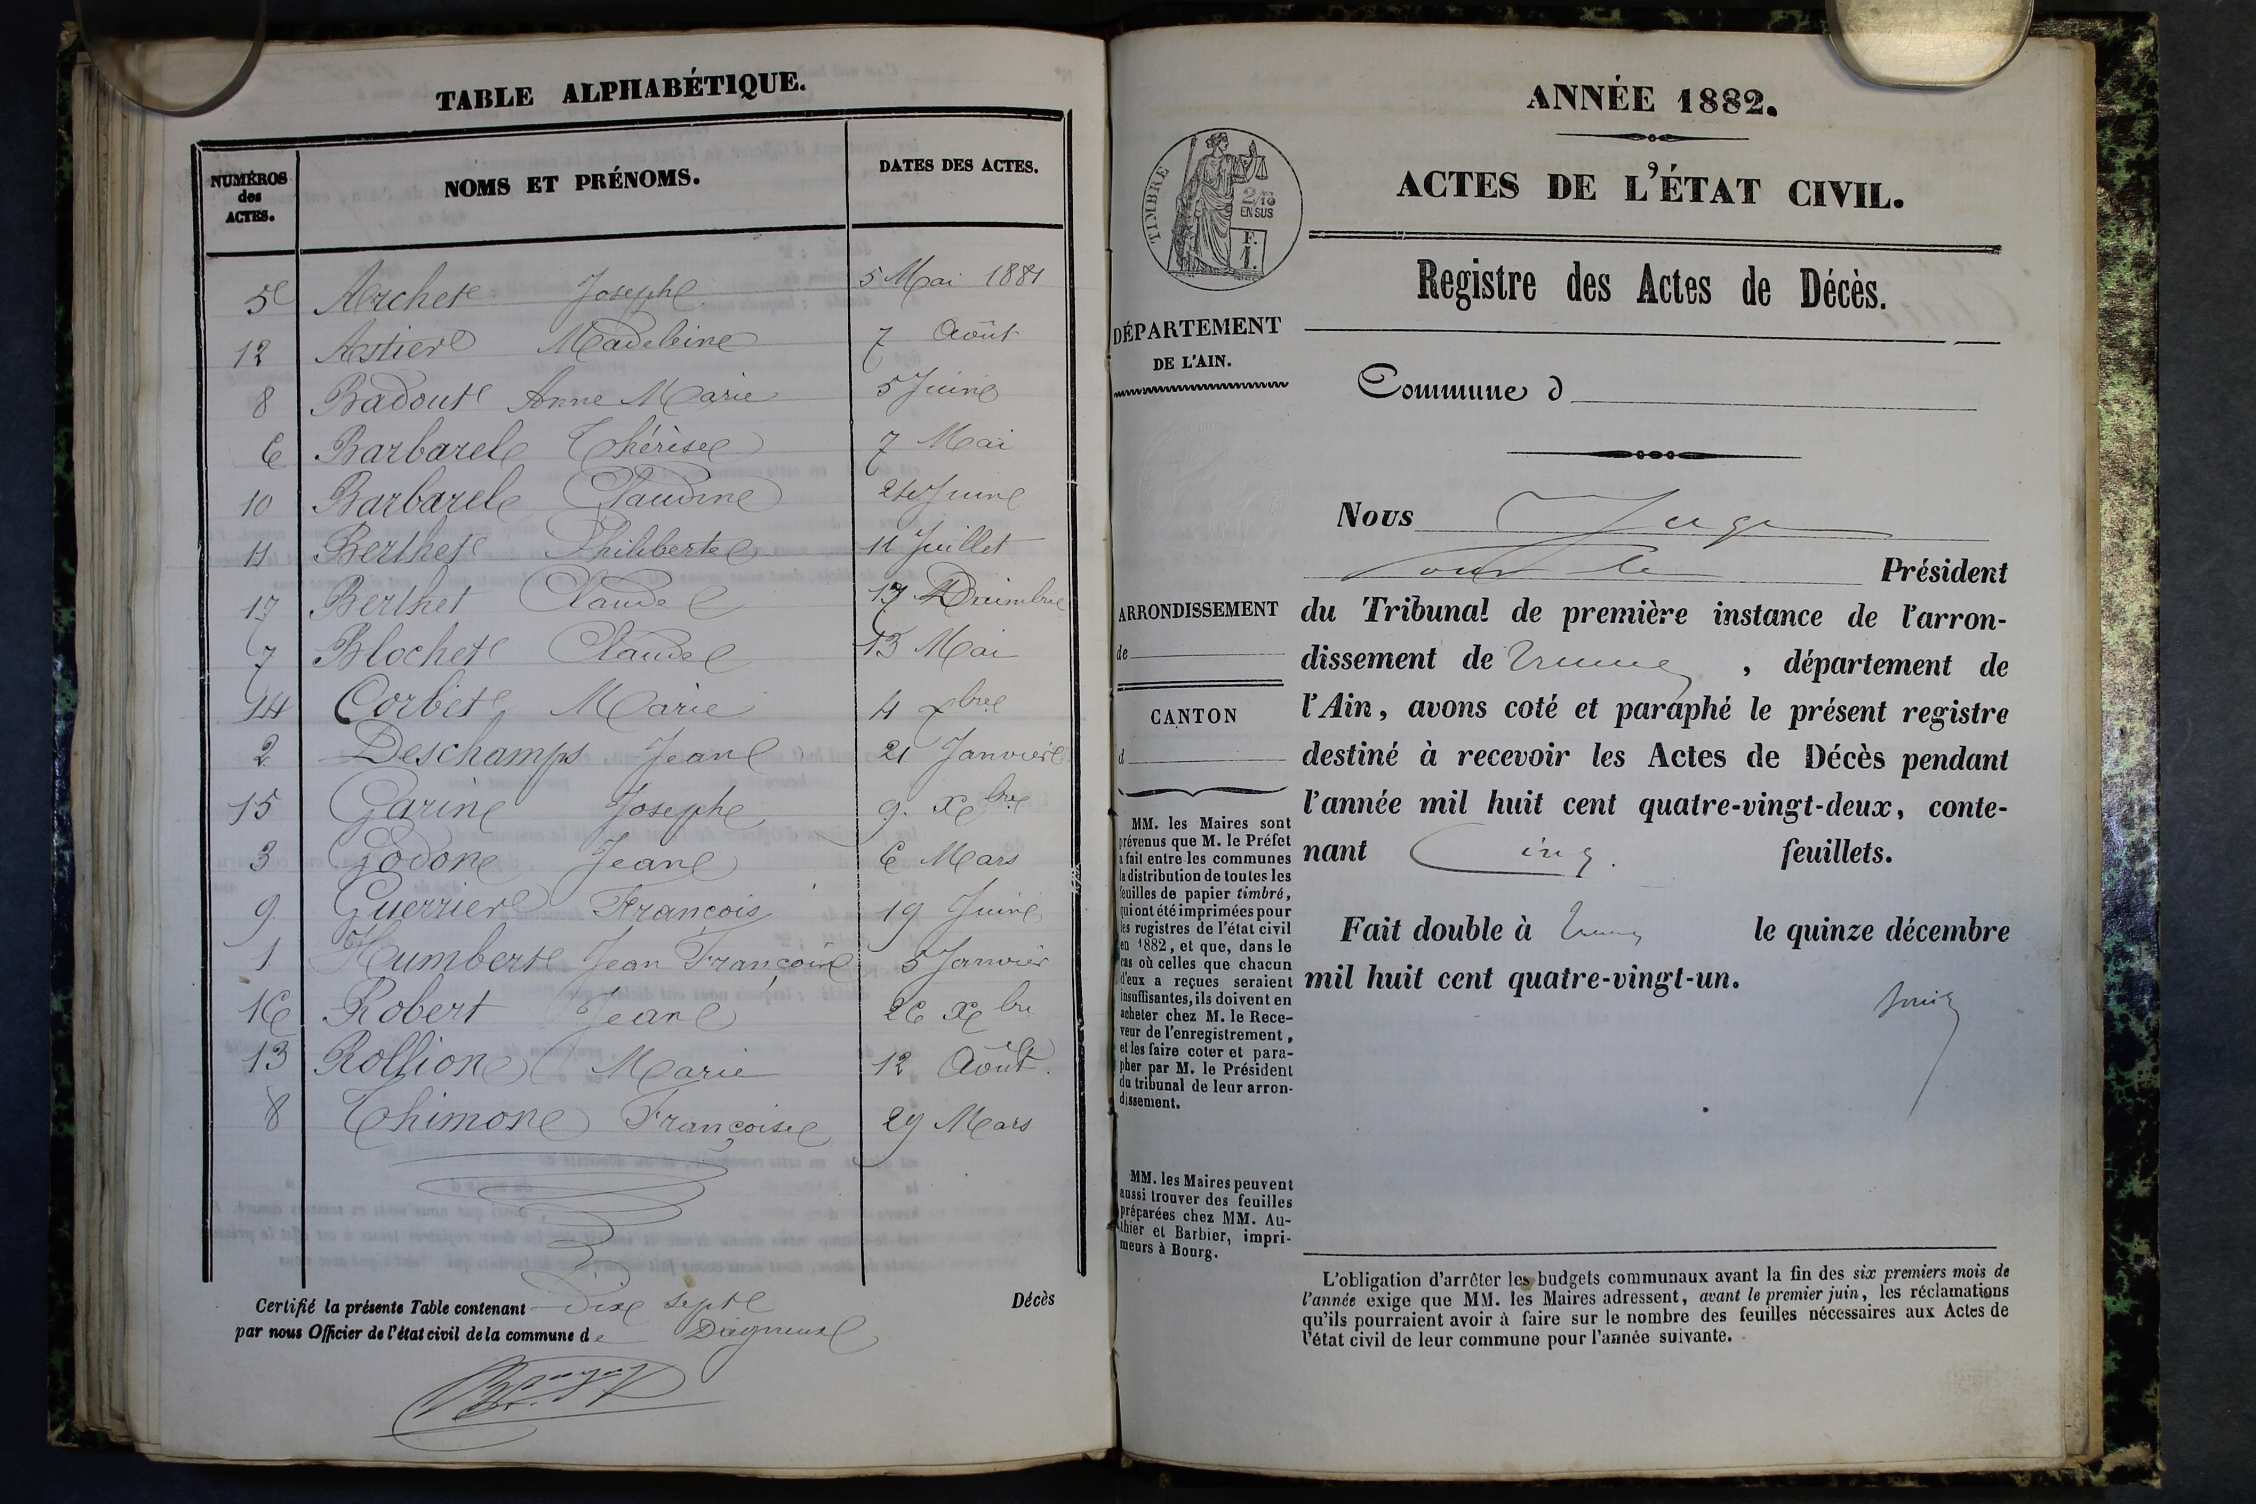 TABLE ALPHABÉTIQUE.
NUMÉROS des ACTES. NOMS ET PRÉNOMS. DATES DES ACTES.
5 Archet Joseph 5 Mai 1881
12 Astier Madeleine 7 Août
8 Badout Anne Marie 5 Juin
6 Barbarel Thérèse 7 Mai
10 Barbarel Claudine Juin
11 Berthet Philiberte 11 Juillet
17 Berthet Claude
7 Blochet Claude 13 Mai
14 Corbet Marie 4 bre
2 Deschamps Jean 21 Janvier
15 Garin Joseph 9. Xbre
3 Godon Jean 6 Mars
9 Guerrier François 19 Juin
1 Humbert Jean François 5 Janvier
16 Robert Jean 26 Xbre
13 Rollion Marie 12 Août.
8 Thimon Françoise 29 Mars
Certifié la présente Table contenant Dix sept Décès
par nous Officier de l'état civil de la commune de Dagneux
ANNÉE 1882.
ACTES DE L'ÉTAT CIVIL.
TIMBRE
2/10
EN SUS
F.
1.
Registre des Actes de Décès.
DÉPARTEMENT
DE L'AIN.
Commune d
Nous Juge
Pour le Président
ARRONDISSEMENT
de
du Tribunal de première instance de l'arron-
dissement de Trévoux, département de
CANTON
d
l'Ain, avons coté et paraphé le présent registre
destiné à recevoir les Actes de Décès pendant
l'année mil huit cent quatre-vingt-deux, conte-
nant Cinq. feuillets.
Fait double à Trévoux le quinze décembre
mil huit cent quatre-vingt-un.
MM. les Maires sont
prévenus que M. le Préfet
a fait entre les communes
la distribution de toutes les
feuilles de papier timbré,
qui ont été imprimées pour
les registres de l'état civil
en 1882, et que, dans le
cas où celles que chacun
d'eux a reçues seraient
insuffisantes, ils doivent en
acheter chez M. le Rece-
veur de l'enregistrement,
et les faire coter et para-
pher par M. le Président
du tribunal de leur arron-
dissement.
MM. les Maires peuvent
aussi trouver des feuilles
préparées chez MM. Au-
thier et Barbier, impri-
meurs à Bourg.
L'obligation d'arrêter les budgets communaux avant la fin des six premiers mois de
l'année exige que MM. les Maires adressent, avant le premier juin, les réclamations
qu'ils pourraient avoir à faire sur le nombre des feuilles nécessaires aux Actes de
l'état civil de leur commune pour l'année suivante.